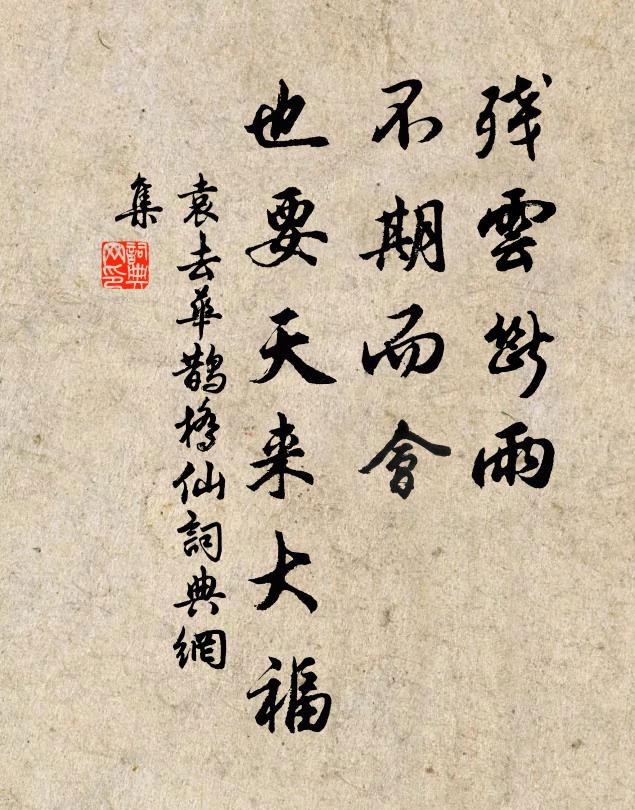 残雲斷雨
不期而會
也要天来大福
袁去華鵲橋仙詞典網
集
詞典
网印